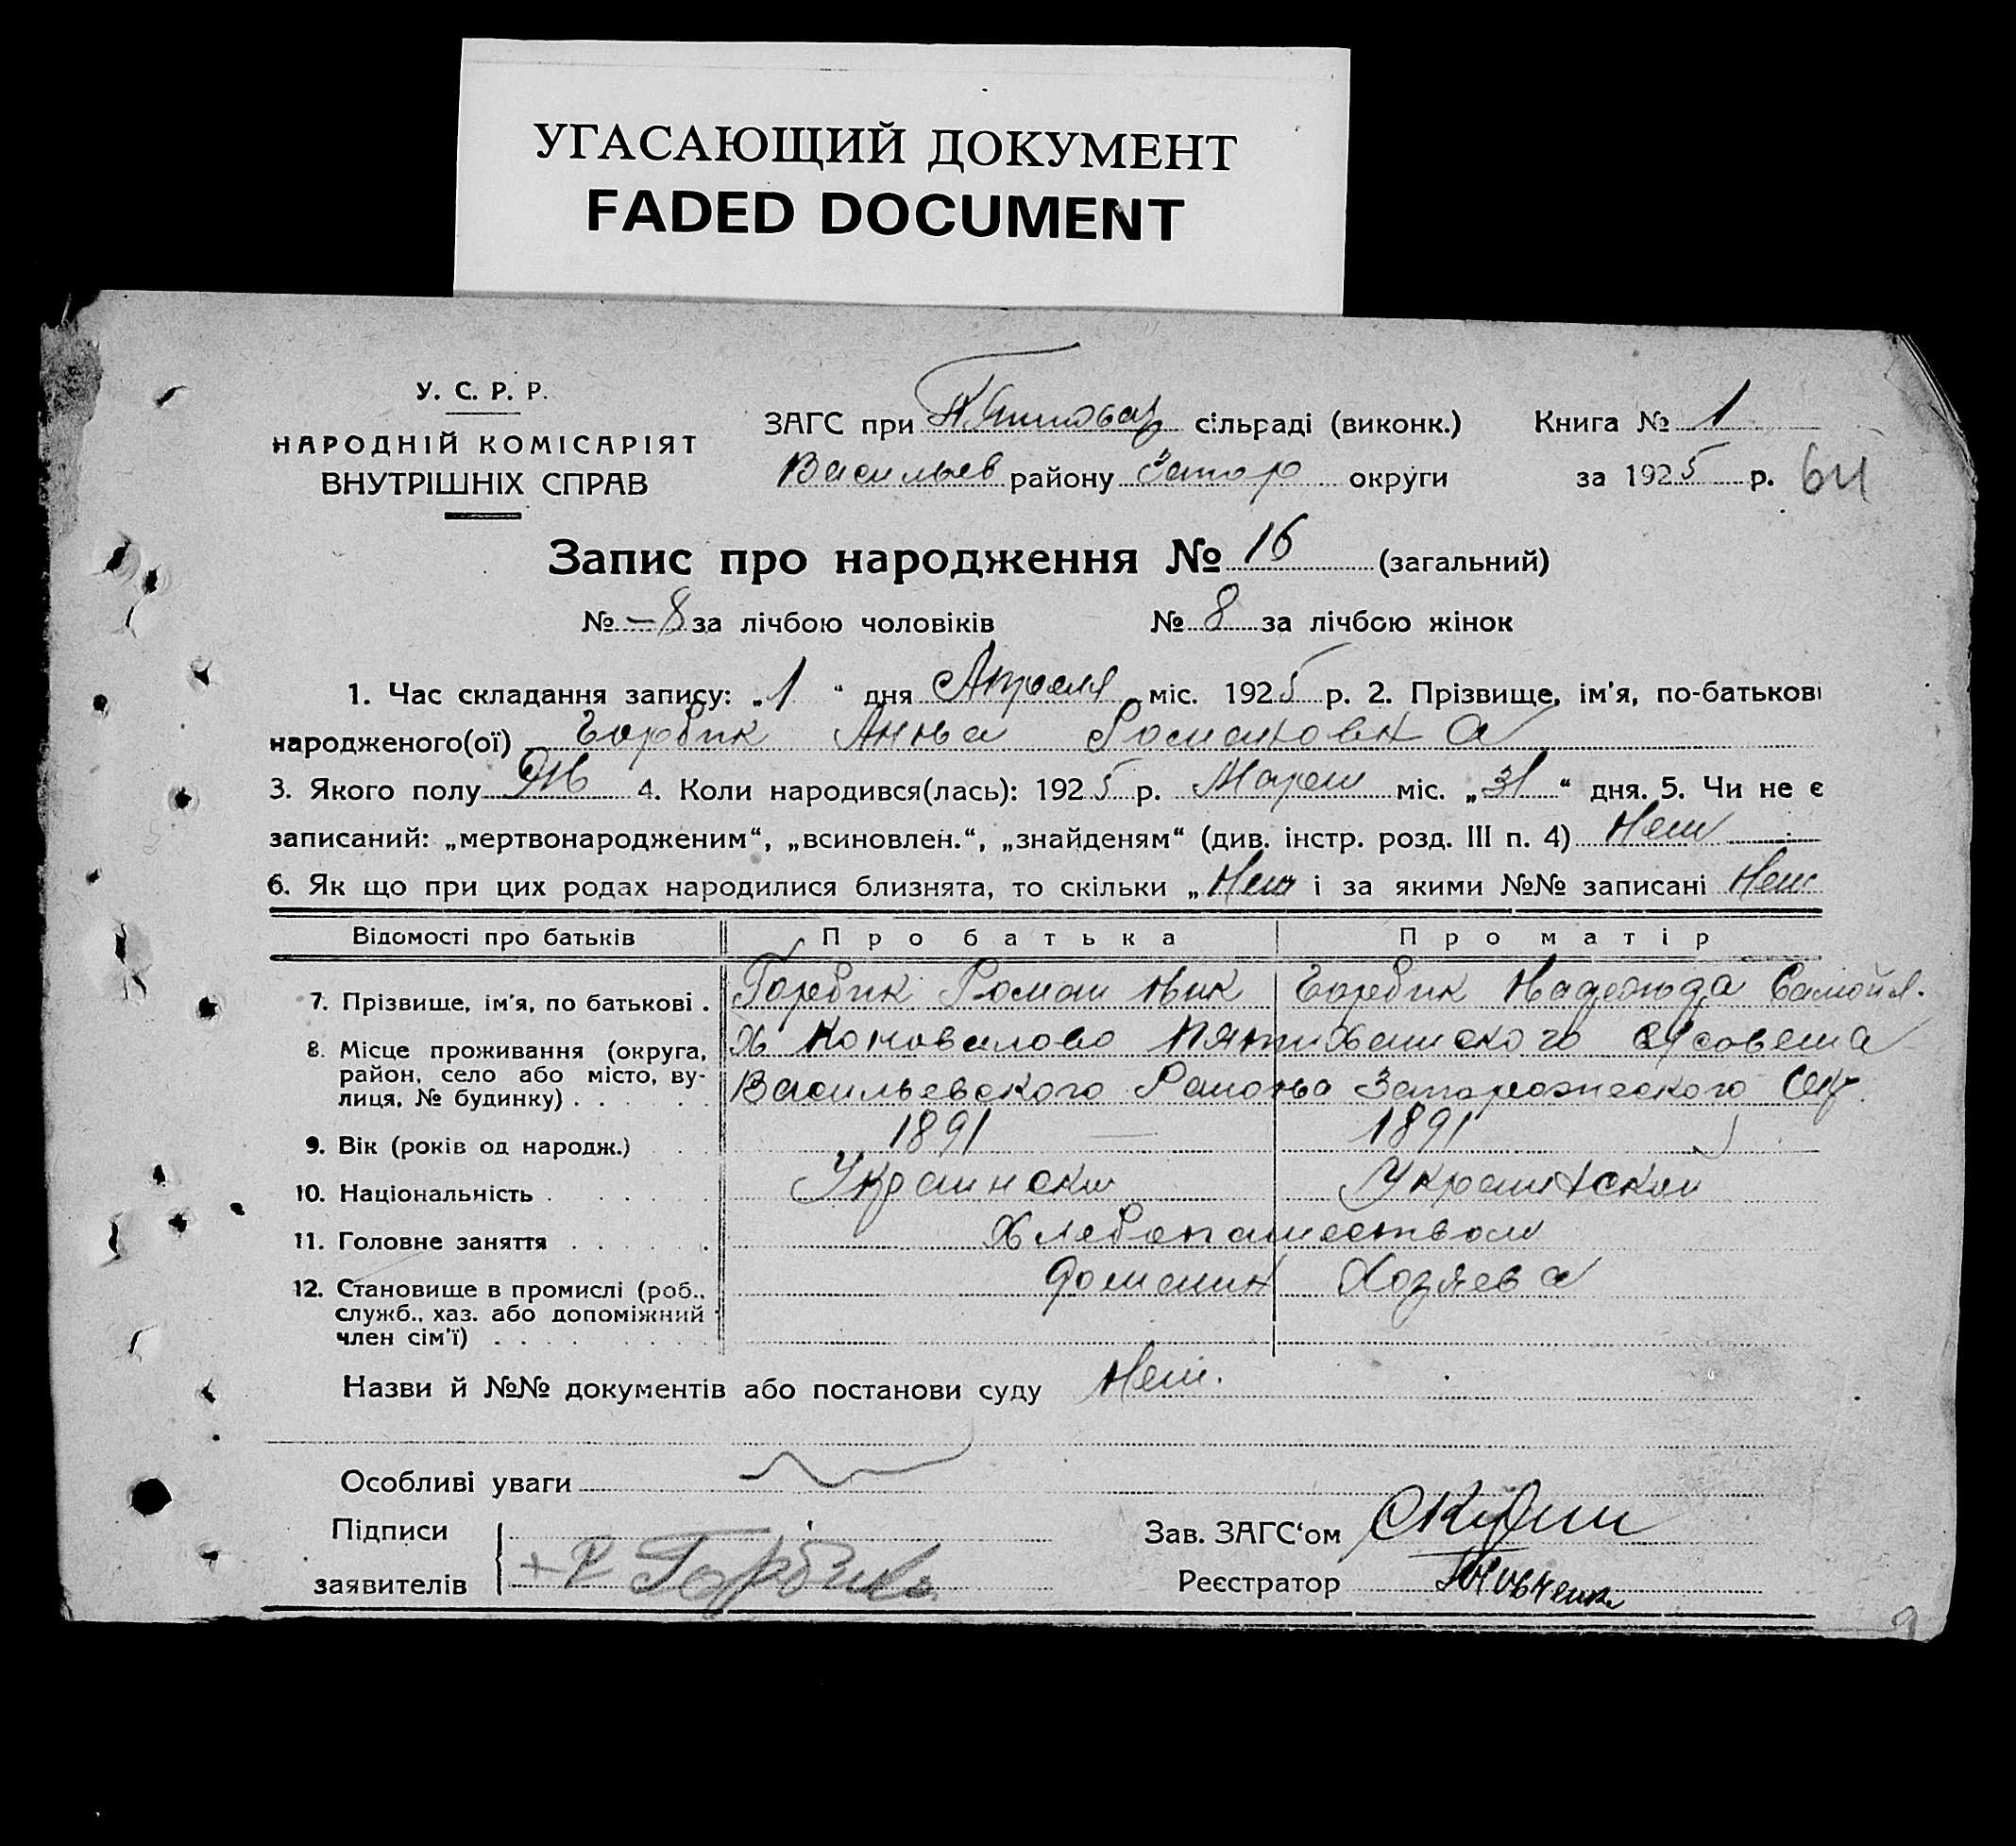 УГАСАЮЩИЙ ДОКУМЕНТ
FADED DOCUMENT
У. С. Р. Р.
НАРОДНІЙ КОМІСАРІЯТ
ВНУТРІШНІХ СПРАВ
ЗАГС при сільраді (виконк.) Книга № 1
Васильев району Запор округи за 1925 р. 64
Запис про народження № 16 (загальний)
№ – 8 за лічбою чоловіків № 8 за лічбою жінок
1. Час складання запису: „1“ дня Апреля міс. 1925 р. 2. Прізвище, ім'я, по-батькові
народженого(ої) Горбик Анна Романовна
3. Якого полу Ж 4. Коли народився(лась): 1925 р. Март міс. „31“ дня. 5. Чи не є
записаний: „мертвонародженим“, „всиновлен.“, „знайденям“ (див. інстр. розд. III п. 4) Нет
6. Як що при цих родах народилися близнята, то скільки „Нет і за якими №№ записані Нет
Відомості про батьків Про батька Про матір
7. Прізвище, ім'я, по батькові . Горбик Роман Ник Горбик Надежда Самойл.
8. Місце проживання (округа, район, село або місто, вулиця, № будинку) . . . . . . Х Коновалово Пятихатского с/совета
Васильевского Района Запорожского Окр.
9. Вік (років од народж.) 1891 1891
10. Національність . . . . . . Украински Украинский
11. Головне заняття . . . . . . Хлебопашеством
12. Становище в промислі (роб., служб., хаз. або допоміжний член сім'ї) . . . . . . Домашн Хозяева
Назви й №№ документів або постанови суду Нет.
Особливі уваги
Підписи
заявителів + Р Горбик
Зав. ЗАГС‘ом
Реєстратор
9